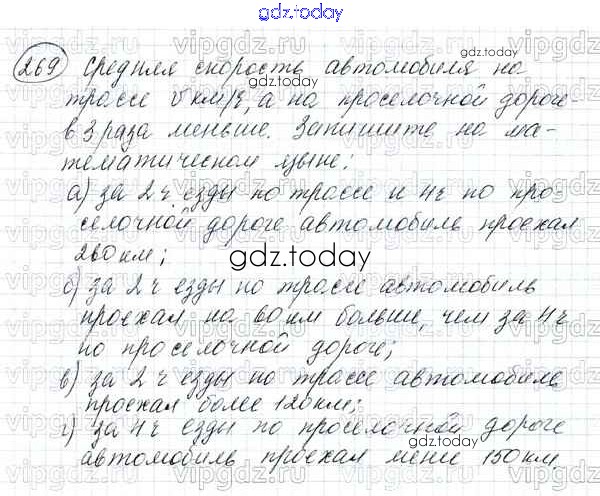 gdz.today
269 Средняя скорость автомобиля на
трассе v км/ч, а на проселочной дороге
в 3 раза меньше. Запишите на ма-
тематическом языке:
а) за 2 ч езды по трассе и 4ч по про-
селочной дороге автомобиль проехал
260 км;
б) за 2 ч езды по трассе автомобиль
проехал на 60 км больше, чем за 4ч
по проселочной дороге;
в) за 2 ч езды по трассе автомобиль
проехал более 120км;
г) за 4ч езды по проселочной дороге
автомобиль проехал менее 150 км.
gdz.today
gdz.today
gdz.today
gdz.today
vipgdz.ru